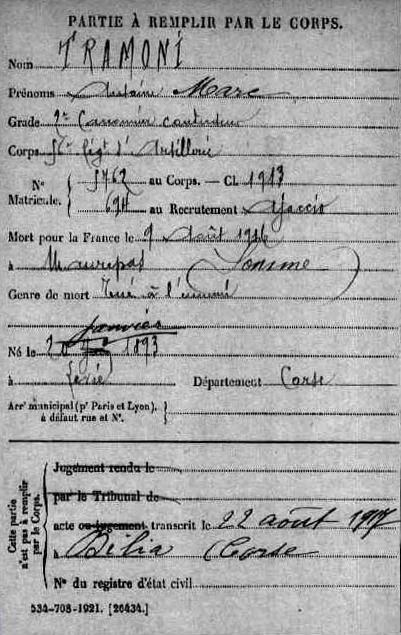 PARTIE À REMPLIR PAR LE CORPS.
Nom TRAMONI
Prénoms Antoine Marc
Grade 2e Canonnier conducteur
Corps 56e Régt d'Artillerie
N° Matricule. { 5762 au Corps. — Cl. 1913
694 au Recrutement Ajaccio
Mort pour la France le 9 Août 1916
à Maurepas (Somme)
Genre de mort Tué à l'ennemi
janvier
Né le 20 1893
à Levie Département Corse
Arrt municipal (pr Paris et Lyon), à défaut rue et N°. }
Cette partie n'est pas à remplir par le Corps. {
Jugement rendu le
par le Tribunal de
acte ou jugement transcrit le 22 août 1917
à Bilia Corse
N° du registre d'état civil
534-708-1921. [26434.]